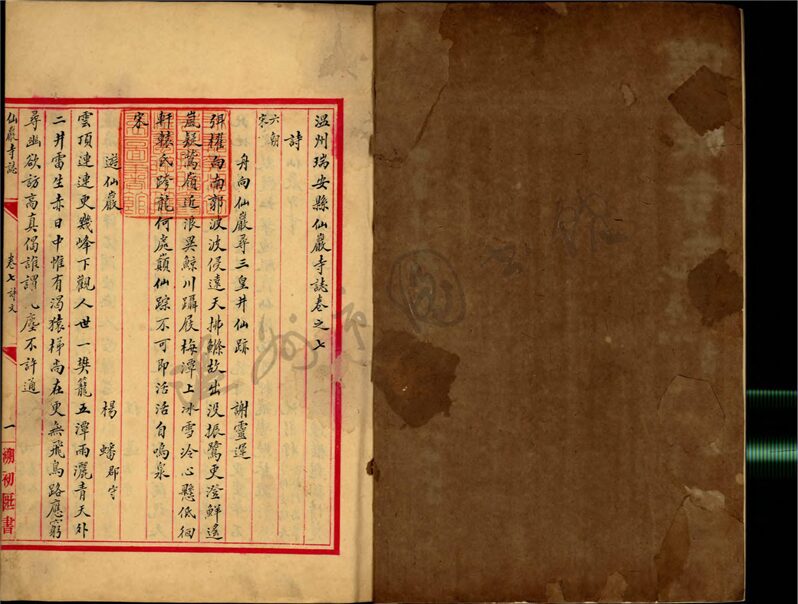 溫州瑞安縣仙巖寺誌卷之七
詩
六朝
宋
舟向仙巖尋三皇井仙跡 謝靈運
弭櫂向南郭波波侵遠天拂鰷故出没振鷺更澄鮮遙
嵐疑鷲嶺近浪異鯨川躡屐梅潭上冰雪冷心懸低徊
軒轅氏跨龍何處巔仙踪不可即活活自鳴泉
宋
遊仙巖 楊蟠郡守
雲頂連連更幾峰下觀人世一樊籠五潭雨灑青天外
二井雷生赤日中惟有濁猿梯尚在更無飛鳥路應窮
尋幽欲訪高真侶誰謂塵不許通
仙巖寺誌
卷七詩文
一